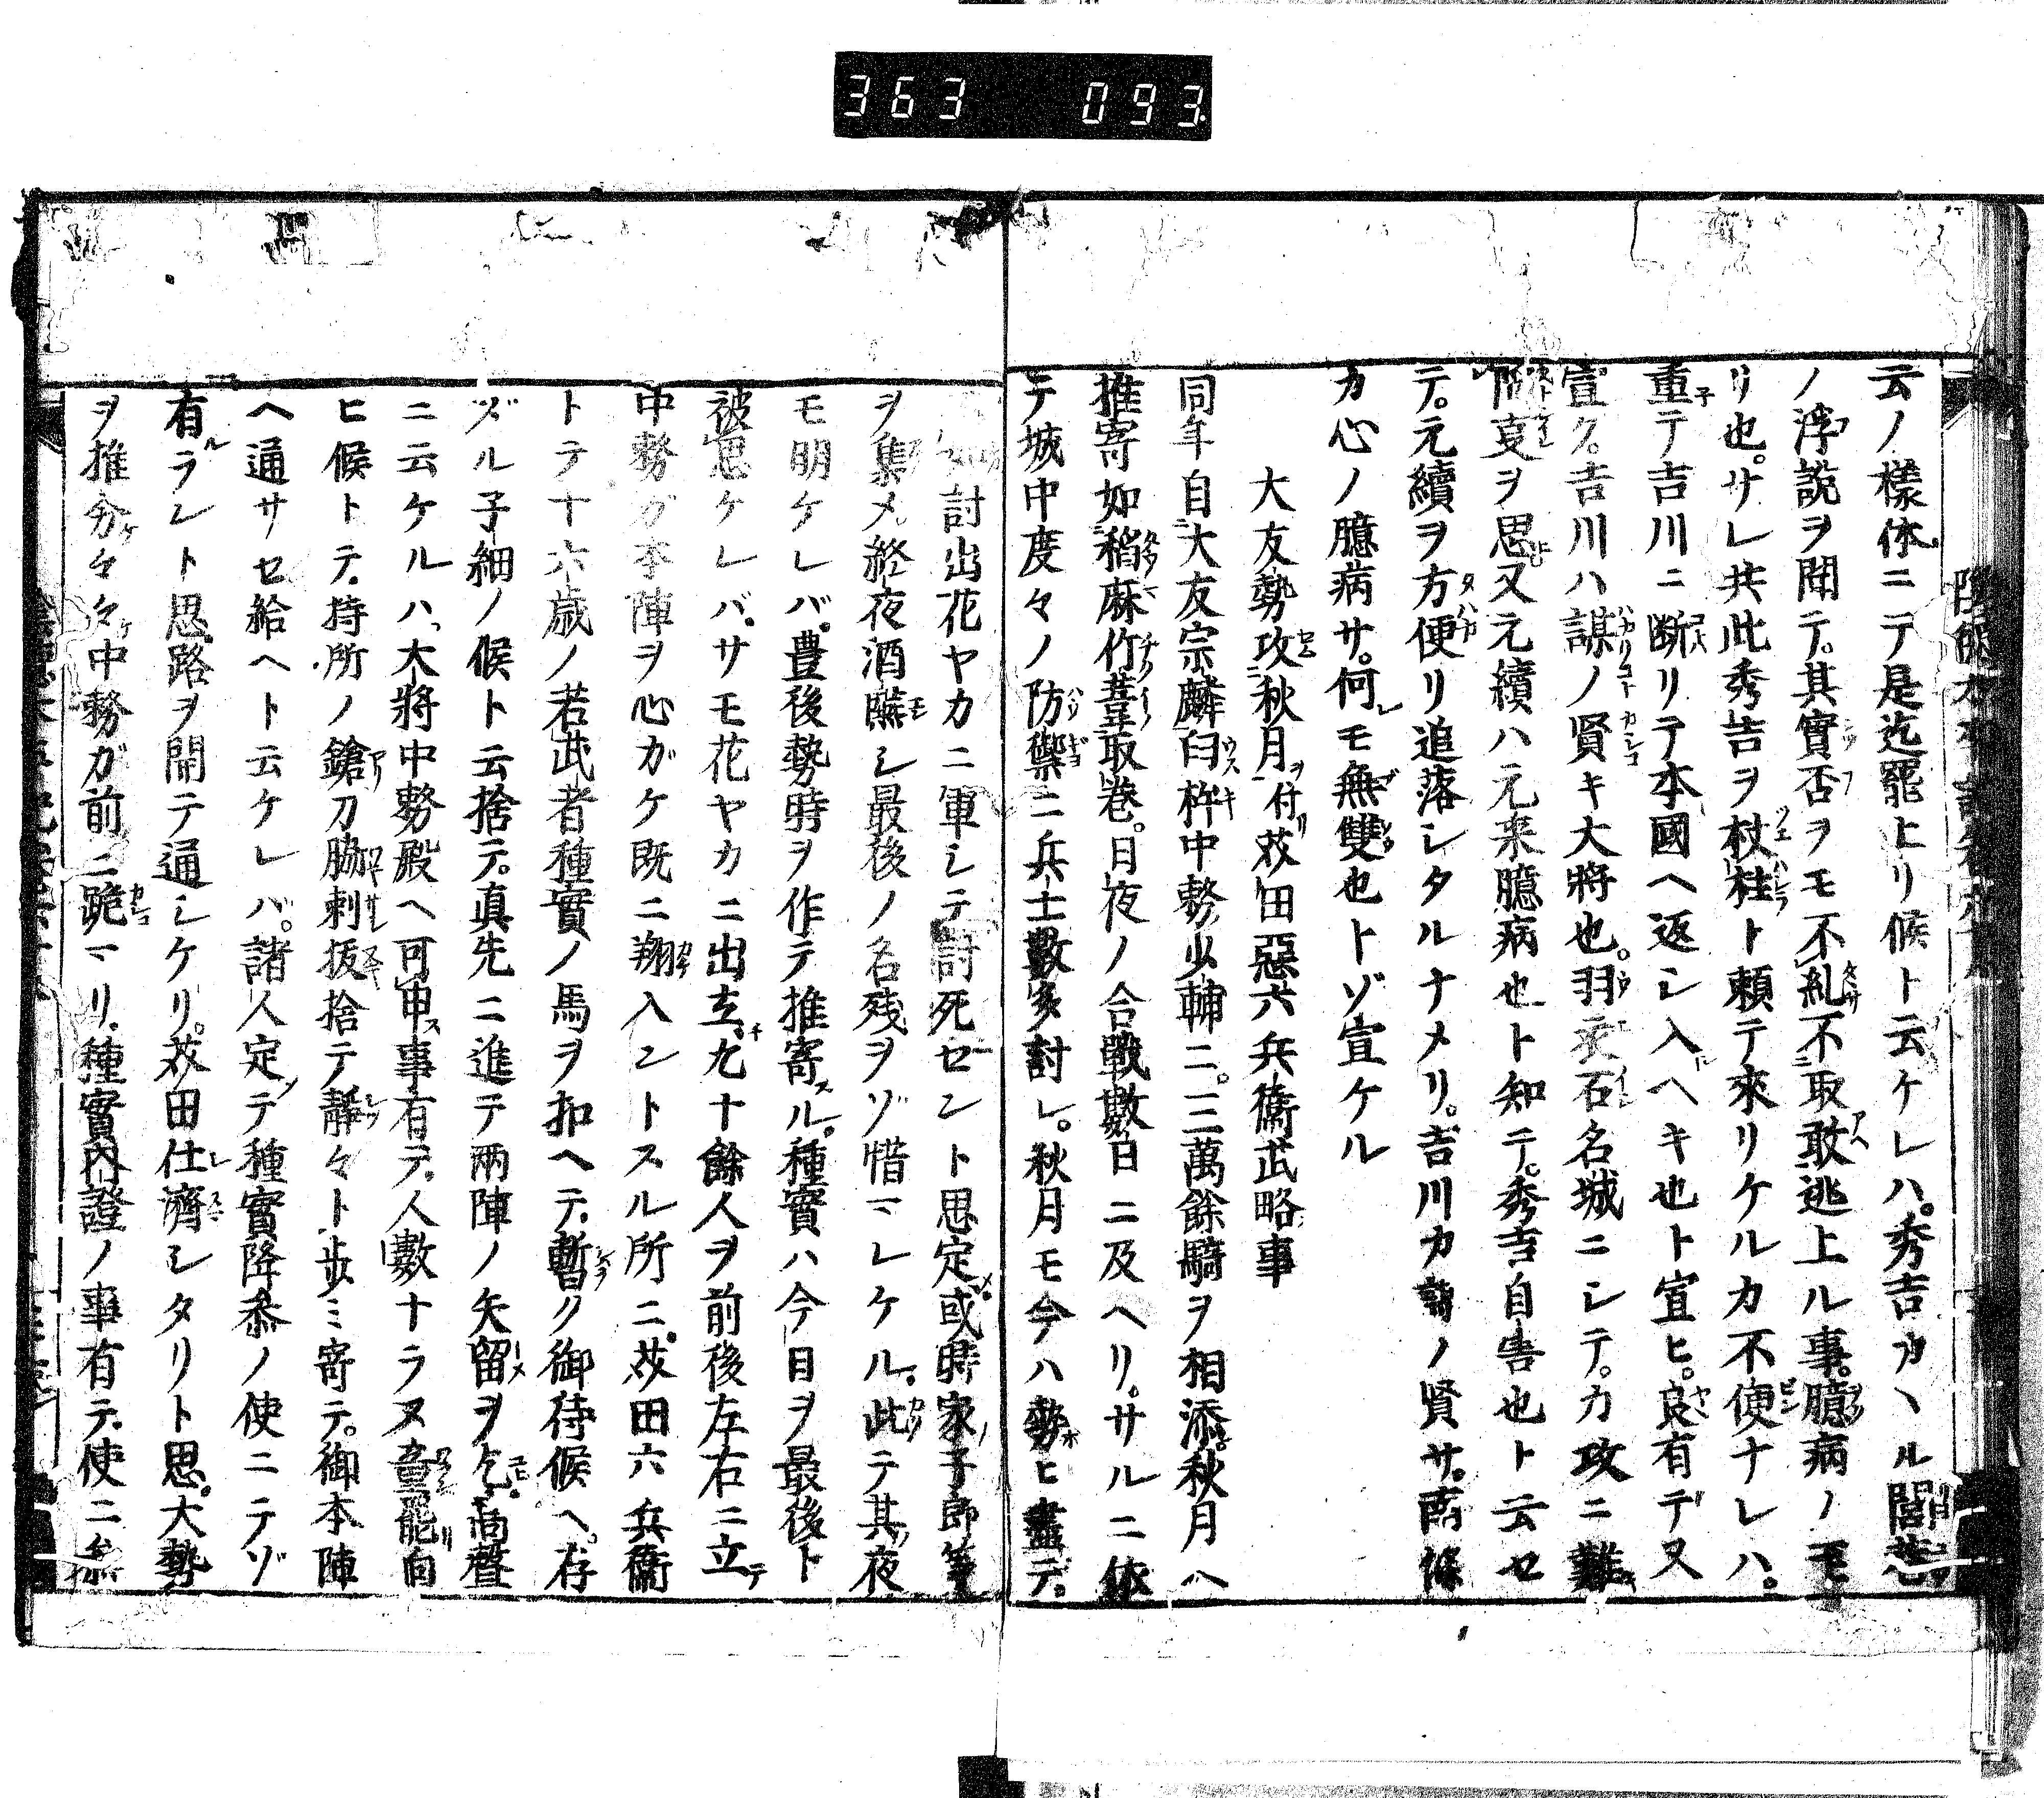 363 093
云ノ様体ニテ是迄罷上リ候ト云ケレハ。秀吉カヽル闇
ノ浮説ヲ聞テ。其實否ヲモ不糺不取敢逃上ル事。臆病ノ
リ也。サレ共此秀吉ヲ杖柱ト頼テ來リケルカ不便ナレハ。
重テ吉川ニ断リテ本國ヘ返シ入ヘキ也ト宣ヒ。良有デ又
宣ク。吉川ハ謀ノ賢キ大將也。羽衣石名城ニシテ。力攻ニ難
ヲ思又元續ハ元来臆病也ト知テ。秀吉自害也ト云セ
テ。元續ヲ方便リ追落レタルナメリ。吉川カ謀ノ賢サ。南條
カ心ノ臆病サ。何モ無雙也トゾ宣ケル
大友勢攻秋月付苅田惡六兵衞武略事
同年自大友宗麟臼杵中務少輔ニ。三萬餘騎ヲ相添。秋月ヘ
推寄如稲麻竹葦取巻。日夜ノ合戰數日ニ及ヘリ。サルニ依
テ城中度々ノ防禦ニ兵士數多討レ。秋月モ今ハ勢ヒ盡デ。
如討出花ヤカニ軍シテ討死セント思定。或時家子郎等
ヲ集メ。終夜酒醼シ最後ノ名残ヲゾ惜マレケル。此テ其夜
モ明ケレバ。豊後勢時ヲ作テ推寄ル。種實ハ今日ヲ最後ト
被思ケレバ。サモ花ヤカニ出立。九十餘人ヲ前後左右ニ立
中務ガ本陣ヲ心ガケ既ニ翔入ントスル所ニ。苅田六兵衞
トテ十六歳ノ若武者種實ノ馬ヲ扣ヘテ。暫ク御待候ヘ。存
ズル子細ノ候ト云捨テ。真先ニ進テ兩陣ノ矢留ヲ乞。高聲
ニ云ケルハ、大將中務殿ヘ可申事有テ。人數ナラヌ童罷向
ヒ候トテ。持所ノ鎗刀脇刺抜捨テ静々ト歩ミ寄テ。御本陣
ヘ通サセ給ヘト云ケレハ。諸人定テ種實降参ノ使ニテゾ
有ラント思。路ヲ開テ通シケリ。苅田仕濟シタリト思。大勢
ヲ推分々々中務ガ前ニ跪マリ。種實內證ノ事有テ。使ニ参